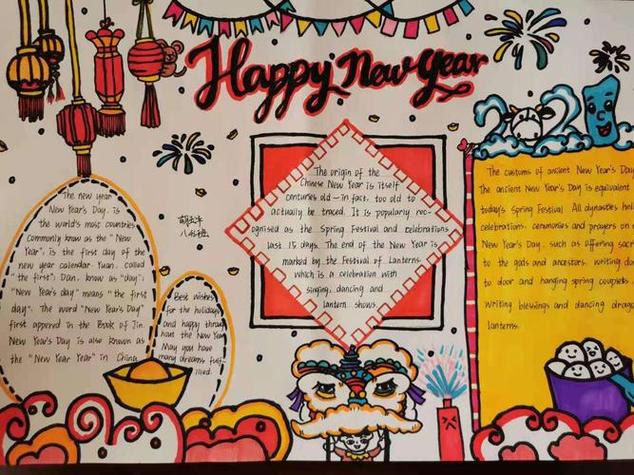 Happy New Year
2021
The new year
New Year's Day, is
the world's most countries
commonly know as the "New
Year", is the first day of the
new year calendar Yuan, called
"the first"; Dan, know as "day";
"New Year's day" means "the first
day". The word "New Year's Day"
first appered in the Book of Jin.
New Year's Day is also known as
the "New Year Year" in China.
Best wishes
for the holidays
and happy throu
hout the New Year
May you have
many dreams fulf-
illed.
八
The origin of the
Chinese New Year is itself
centuries old - in fact, too old to
actually be traced. It is popularly rec-
ognised as the Spring Festival and celebrations
last 15 days. The end of the New Year is
marked by the Festival of Lanterns.
which is a celebration with
singing, dancing and
lantern shows.
The customs of ancient New Year's Day
The ancient New Year's Day is equivalent
today's Spring Festival. All dynasties hel
celebrations, ceremonies and prayers on
New Year's Day, such as offering sacr
to the gods and ancestors, writing do
to door and hanging spring couplets
writing blessings and dancing drag
lanterns.